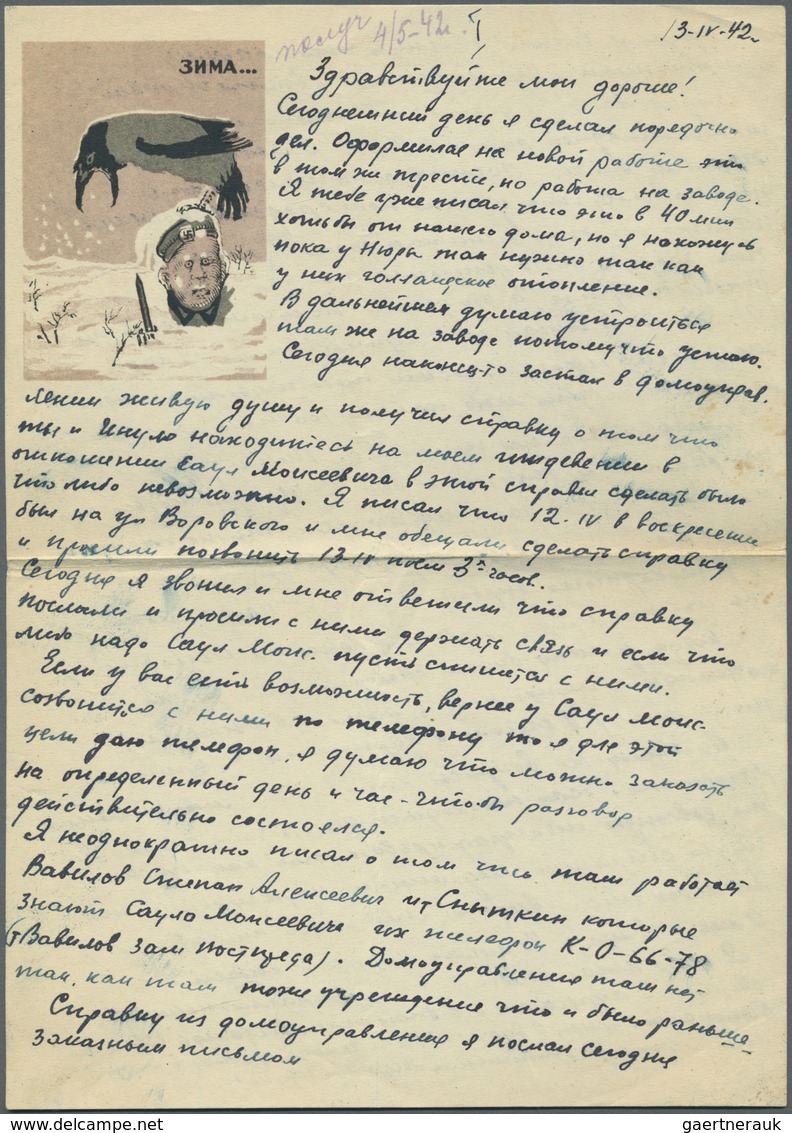 получ 4/5-42г.
13-IV-42г.
ЗИМА...
Здравствуйте мои дорогие!
Сегодняшний день я сделал порядочно
дел. Оформился на новой работе это
в том же тресте, но работа на заводе.
Я тебе уже писал что это в 40 мин
ходьбы от нашего дома, но я нахожусь
пока у Нюры так нужно так как
у них голландское отопление.
В дальнейшем думаю устроиться
там же на заводе потому что устаю.
Сегодня наконец-то застал в домоуправ.
лении живую душу и получил справку о том что
ты и находитесь на моем иждевении в
отношении Саул Моисеевича в этой справки сделать было
что либо невозможно. Я писал что 12-IV в воскресение
был на ул Воровского и мне обещали сделать справку
и просили позвонить 13-IV посл 3х часов.
Сегодня я звонил и мне ответили что справку
послали и просили с ними держать связь и если что
либо надо Саул Моис. пусть спишется с ними.
Если у вас есть возможность, вернее у Саул Моис.
созвонится с ними по телефону то я для этой
цели даю телефон, я думаю что можно заказать
на определенный день и час-чтобы разговор
действительно состоялся.
Я неоднократно писал о том что там работает
Вавилов Степан Алексеевич и т Сныткин которые
знают Саула Моисеевича их телефон К-0-66-78
(т Вавилов зам постпреда). Домоуправления там нет
так, как там тоже учреждение что и было раньше
Справку из домоуправления я послал сегодня
заказным письмом
gaertnerauk